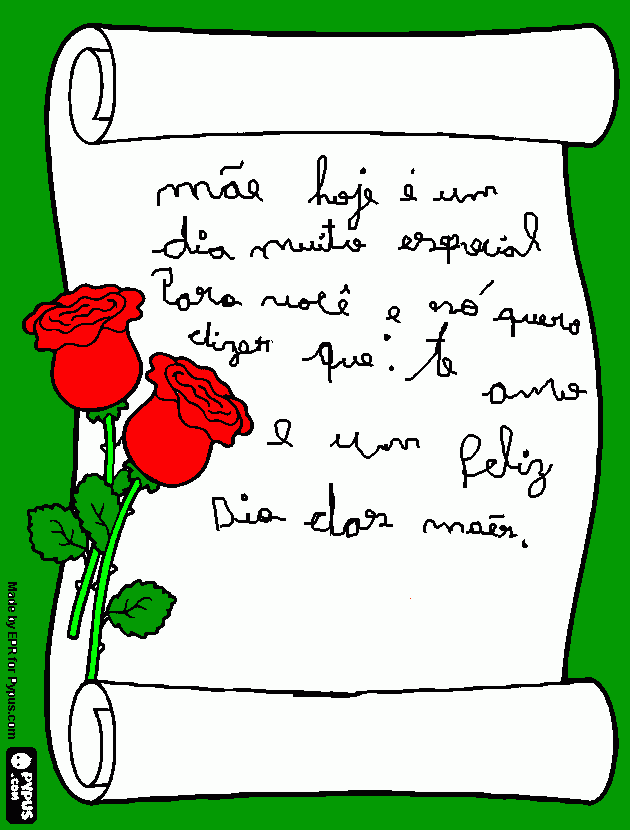 mãe hoje é um
dia muito especial
Para você e só quero
dizer que: te
amo
e um feliz
Dia das maẽs.
Made by EPR for Pypus.com
PYPUS
.COM